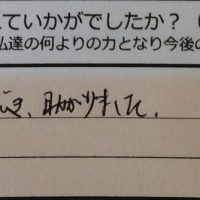 えていかがでしたか？（
私達の何よりの力となり今後の
だき、助かりました。